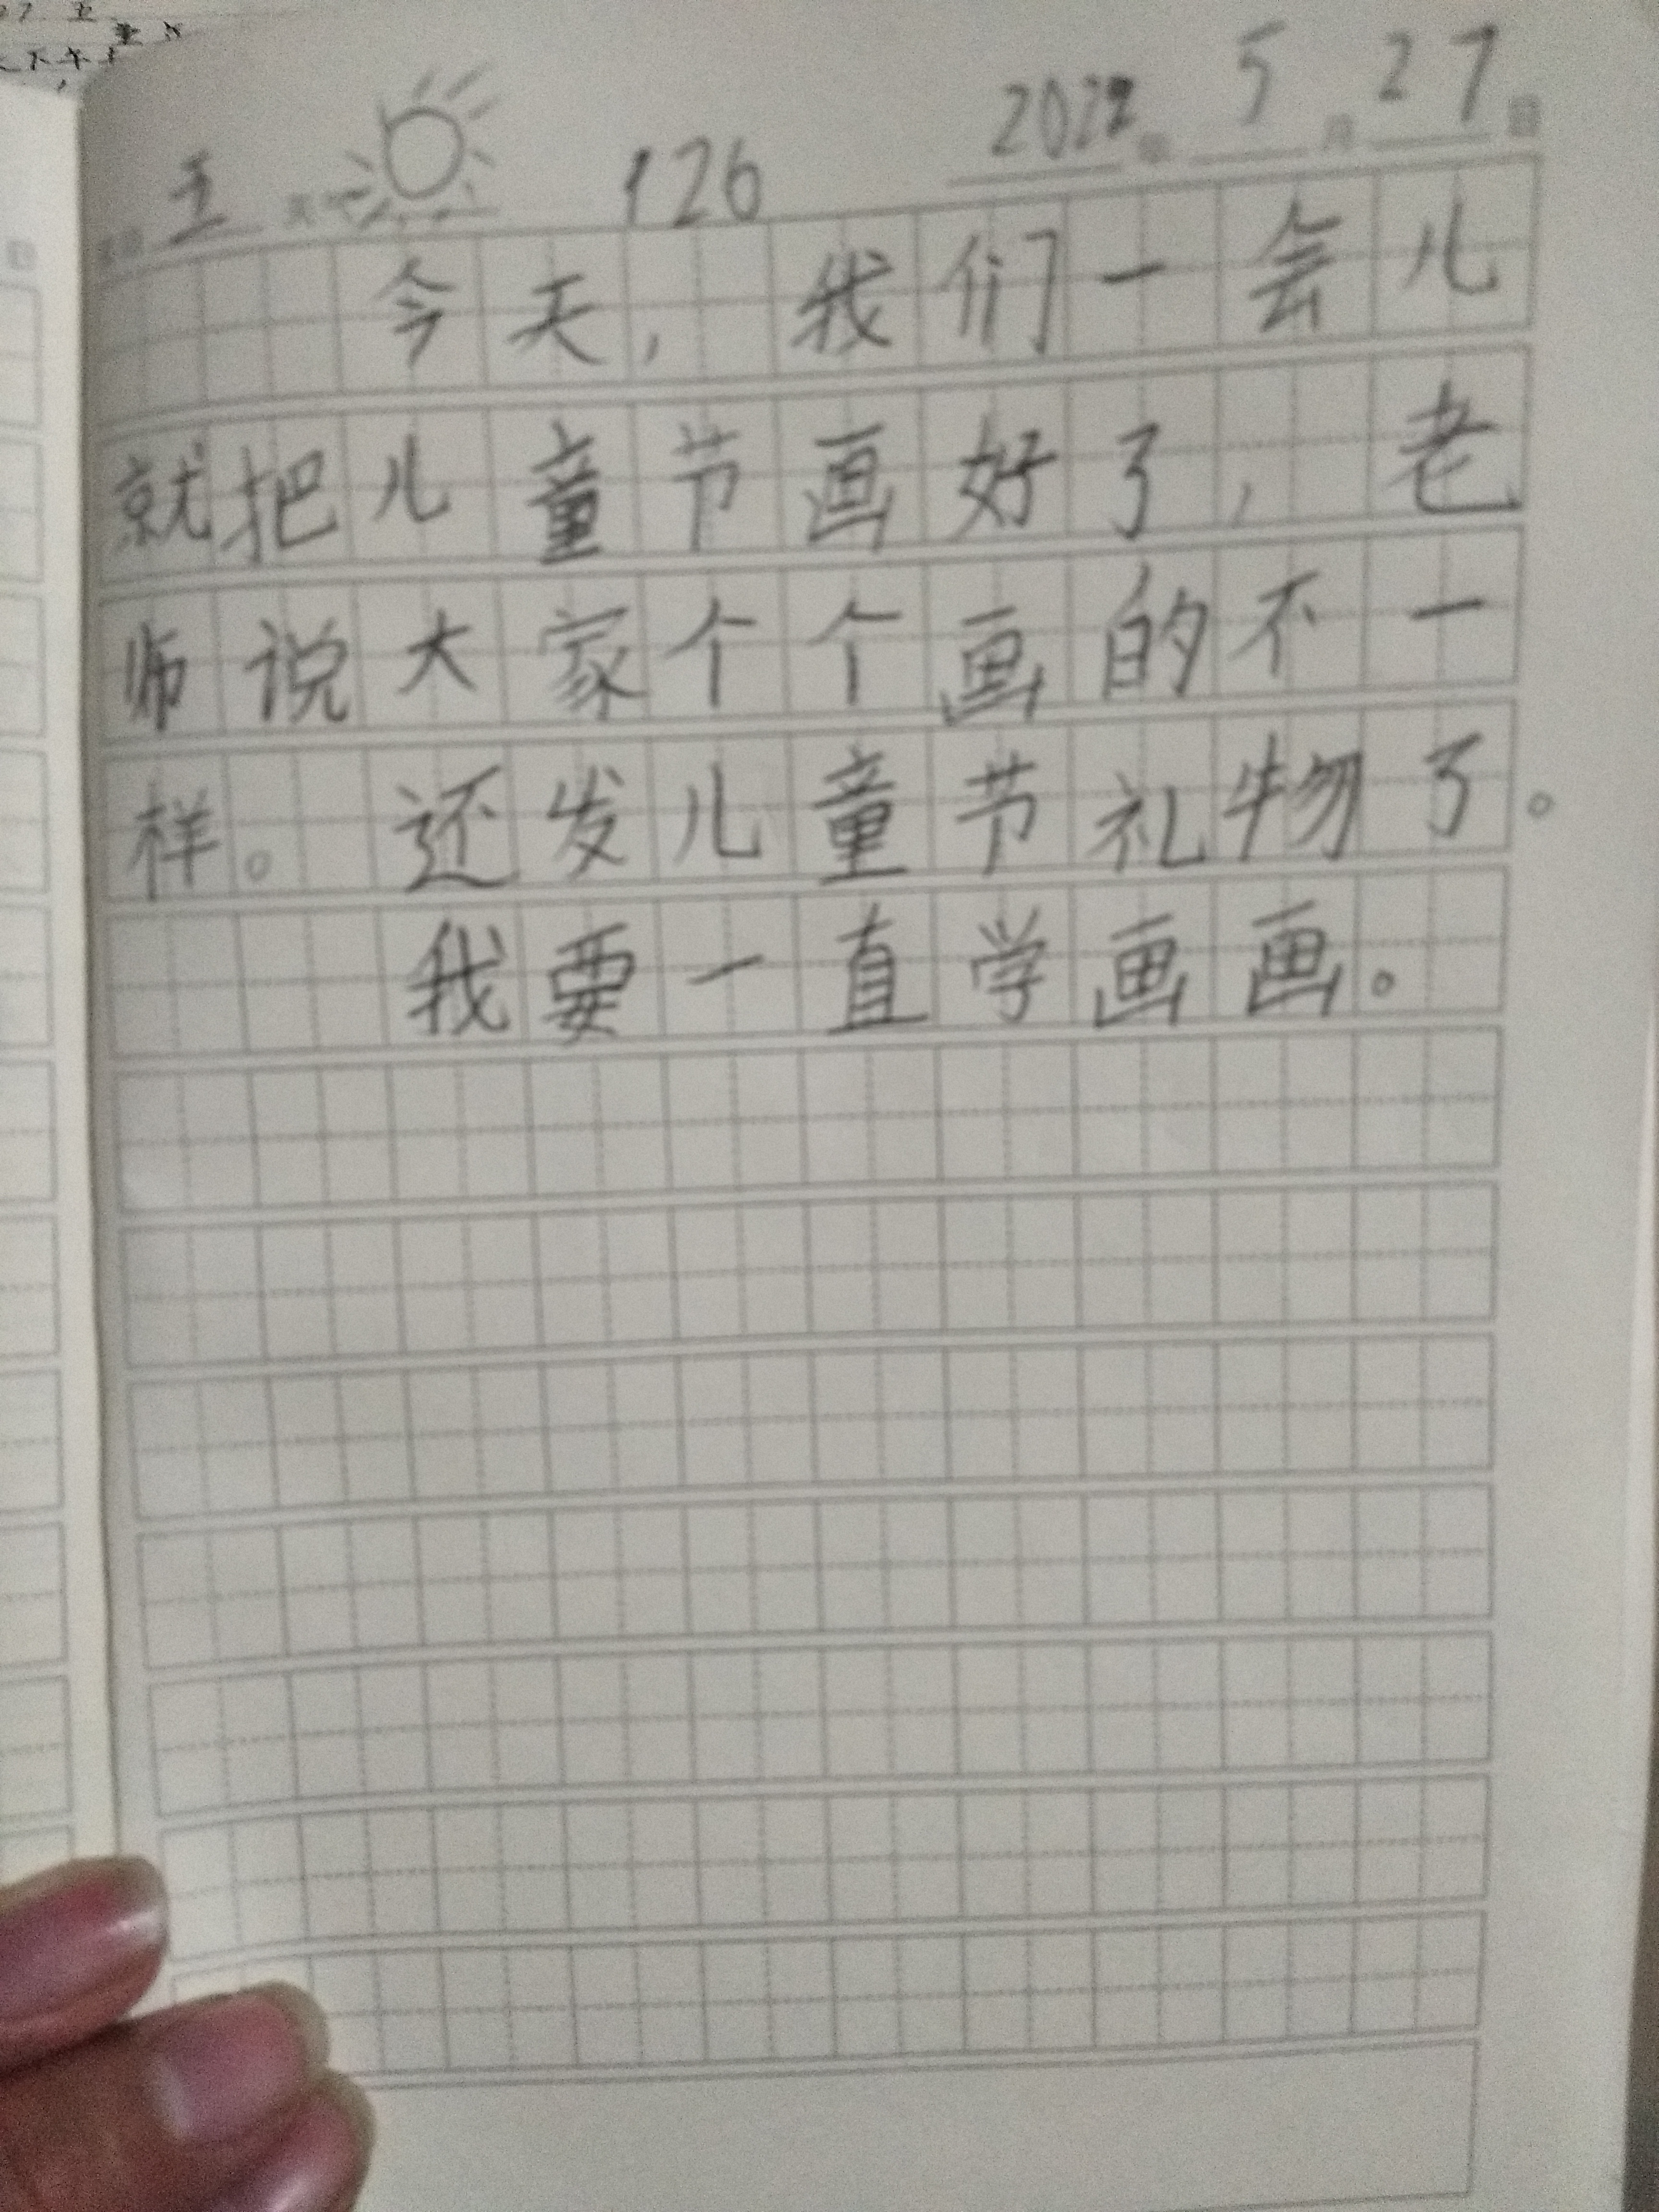 五 126 2022 5 27
今天，我们一会儿
就把儿童节画好了，老
师说大家个个画的不一
样。还发儿童节礼物了。
我要一直学画画。